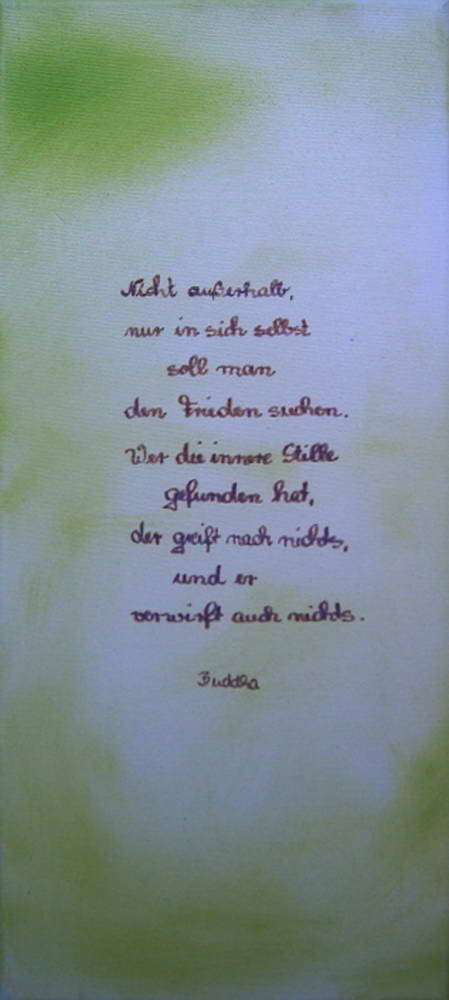 Nicht außerhalb,
nur in sich selbst
soll man
den Frieden suchen.
Wer die innere Stille
gefunden hat,
der greift nach nichts,
und er
verwirft auch nichts.
Buddha